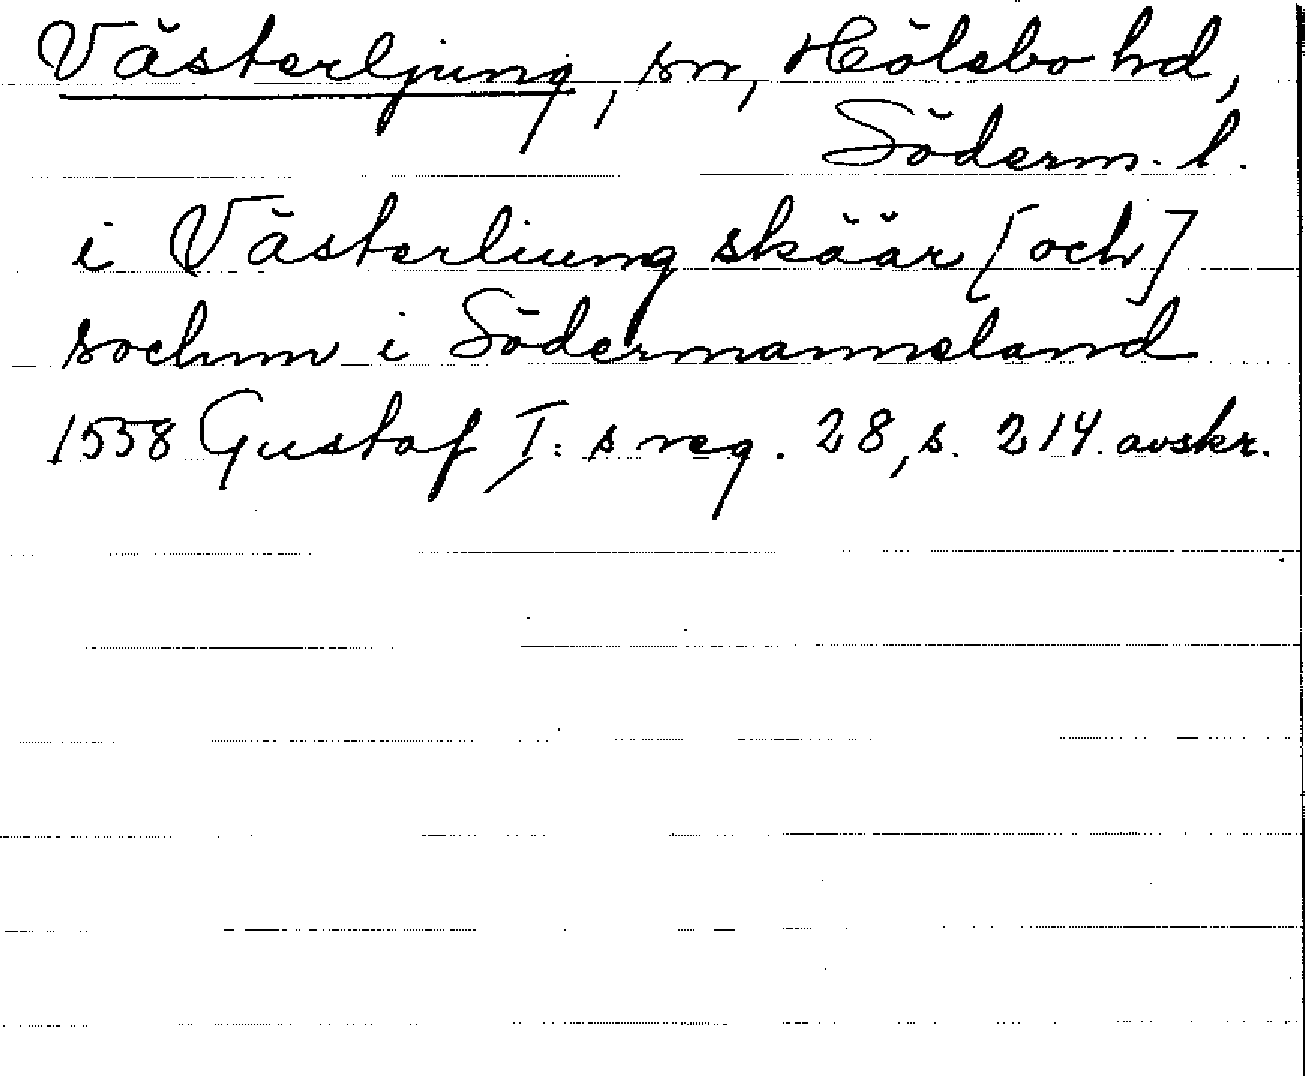 Västerljung, sn, Hölebo hd,
Söderm. l.
i Västerliung skäär [och]
sochnn i Södermanneland
1558 Gustaf I:s reg. 28, s. 214. avskr.